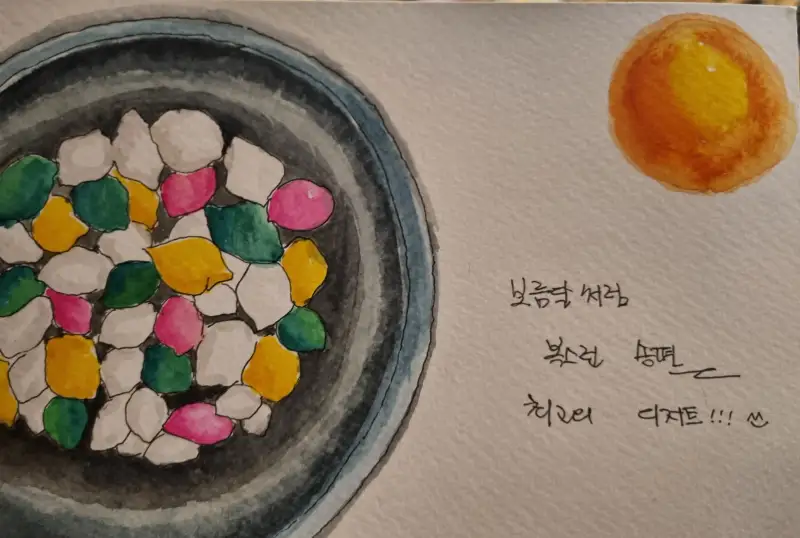 보름달 처럼
복스런 송편
최고의 디저트!!!